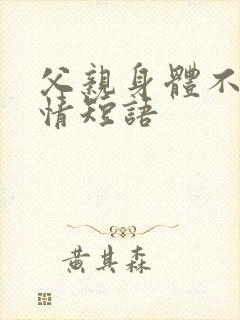 父親身體不
情短語
黃其森